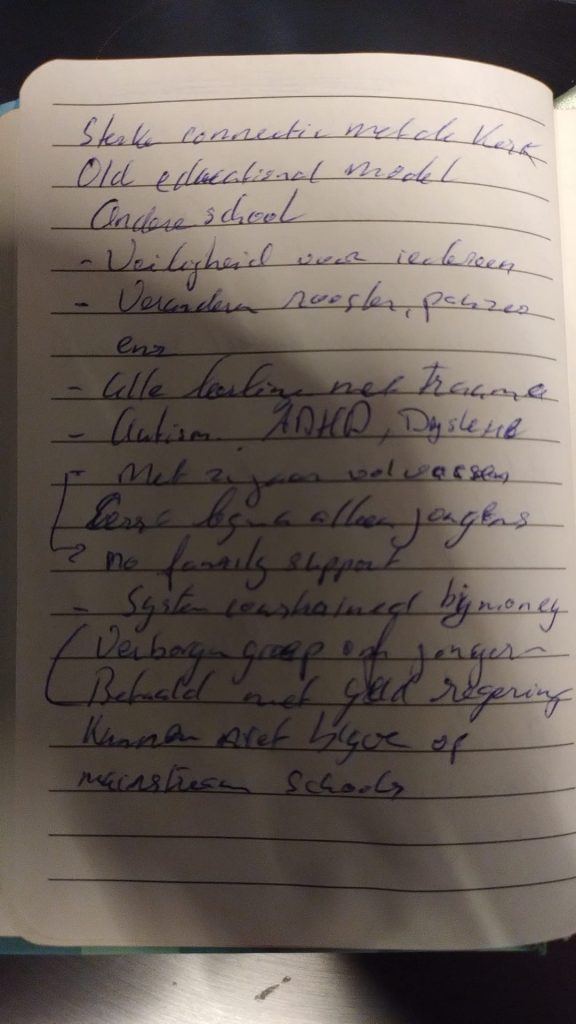 Sterke connectie met de Kerk
Old educational model
Andere school
- Veiligheid voor iedereen
- Veranderen rooster, pauzes
enz
- Alle leerlinge met trauma
- Autism ADHD, Dyslexie
- Met jaar volwassen
Eerst alleen jongens
? no family support
- System constrained by money
Verborgen groep of jonger
Betaald met geld regering
Kunnen niet op
mainstream schools